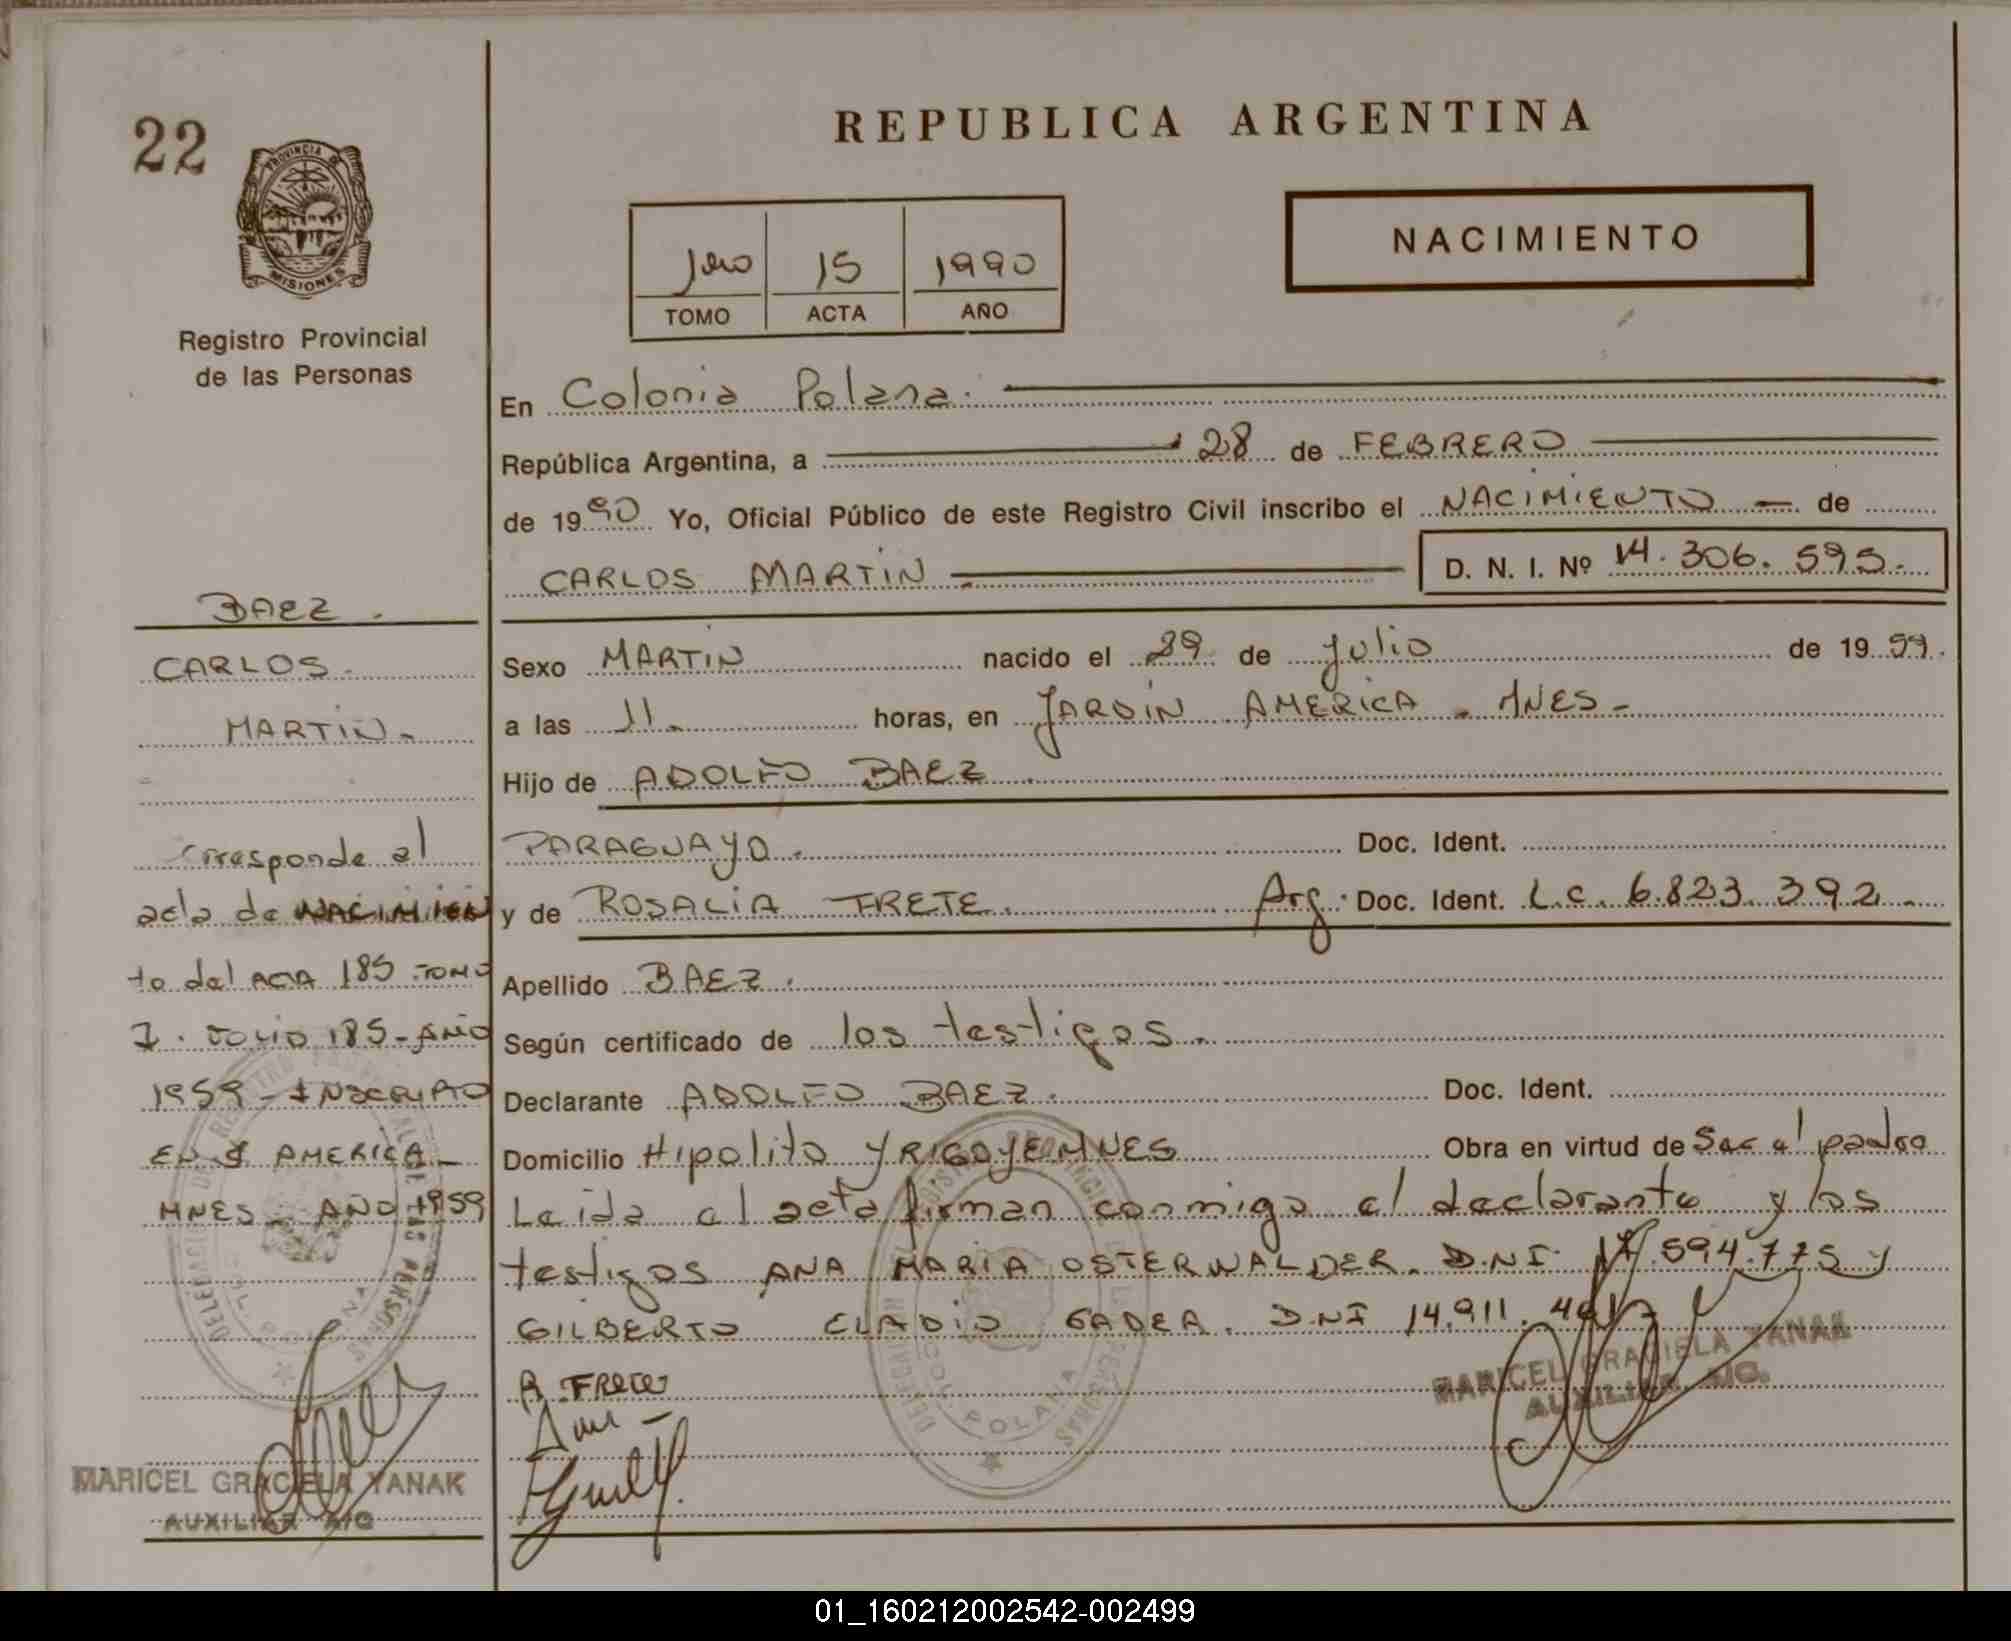 22
PROVINCIA DE
MISIONES
Registro Provincial
de las Personas
BAEZ.
CARLOS.
MARTIN.
Corresponde al
acta de NACIMIEN
to del ACTA 185 TOMO
I. FOLIO 185-AÑO
1959-INSCRIPTO
EN J AMERICA-
MNES. AÑO 1959
MARICEL GRACIELA YANAK
AUXILIAR A/C
REPUBLICA ARGENTINA
NACIMIENTO
1ero 15 1990
TOMO ACTA AÑO
En Colonia Polana.
República Argentina, a 28 de FEBRERO
de 1990 Yo, Oficial Público de este Registro Civil inscribo el NACIMIENTO de
CARLOS MARTIN D. N. I. Nº 14.306.595.
Sexo MARTIN nacido el 29 de julio de 1959.
a las 11. horas, en JARDIN AMERICA - MNES-
Hijo de ADOLFO BAEZ
PARAGUAYO. Doc. Ident.
y de ROSALIA FRETE. Arg. Doc. Ident. L.C. 6.823.392.
Apellido BAEZ.
Según certificado de los testigos.
Declarante ADOLFO BAEZ. Doc. Ident.
Domicilio Hipolito YRIGOYEN MNES Obra en virtud de Ser el padre
Leida el acta firman conmigo el declarante y los
testigos ANA MARIA OSTERWALDER. D.N.I 17.594.775 y
GILBERTO ELADIO GADEA. D.N.I 14.911.
R FRETE
MARICEL GRACIELA YANAK
AUXILIAR A/C.
COL. POLANA
01_160212002542-002499